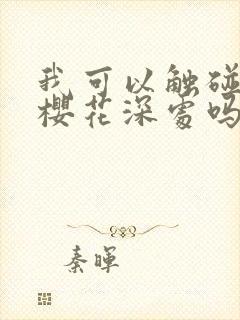 我可以触碰
樱花深处吗
秦晖